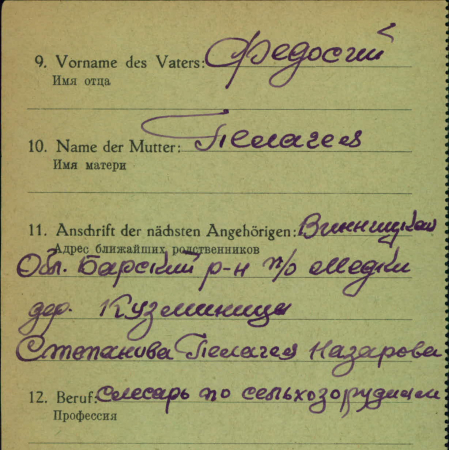 9. Vorname des Vaters: Федосий
Имя отца
10. Name der Mutter: Пелагея
Имя матери
11. Anschrift der nächsten Angehörigen: Винницкая
Адрес ближайших родственников
Обл. Барский р-н п/о Медки
дер. Кузминицы
Степанова Пелагея Назарова
12. Beruf: Слесарь по сельхозорудиям
Профессия